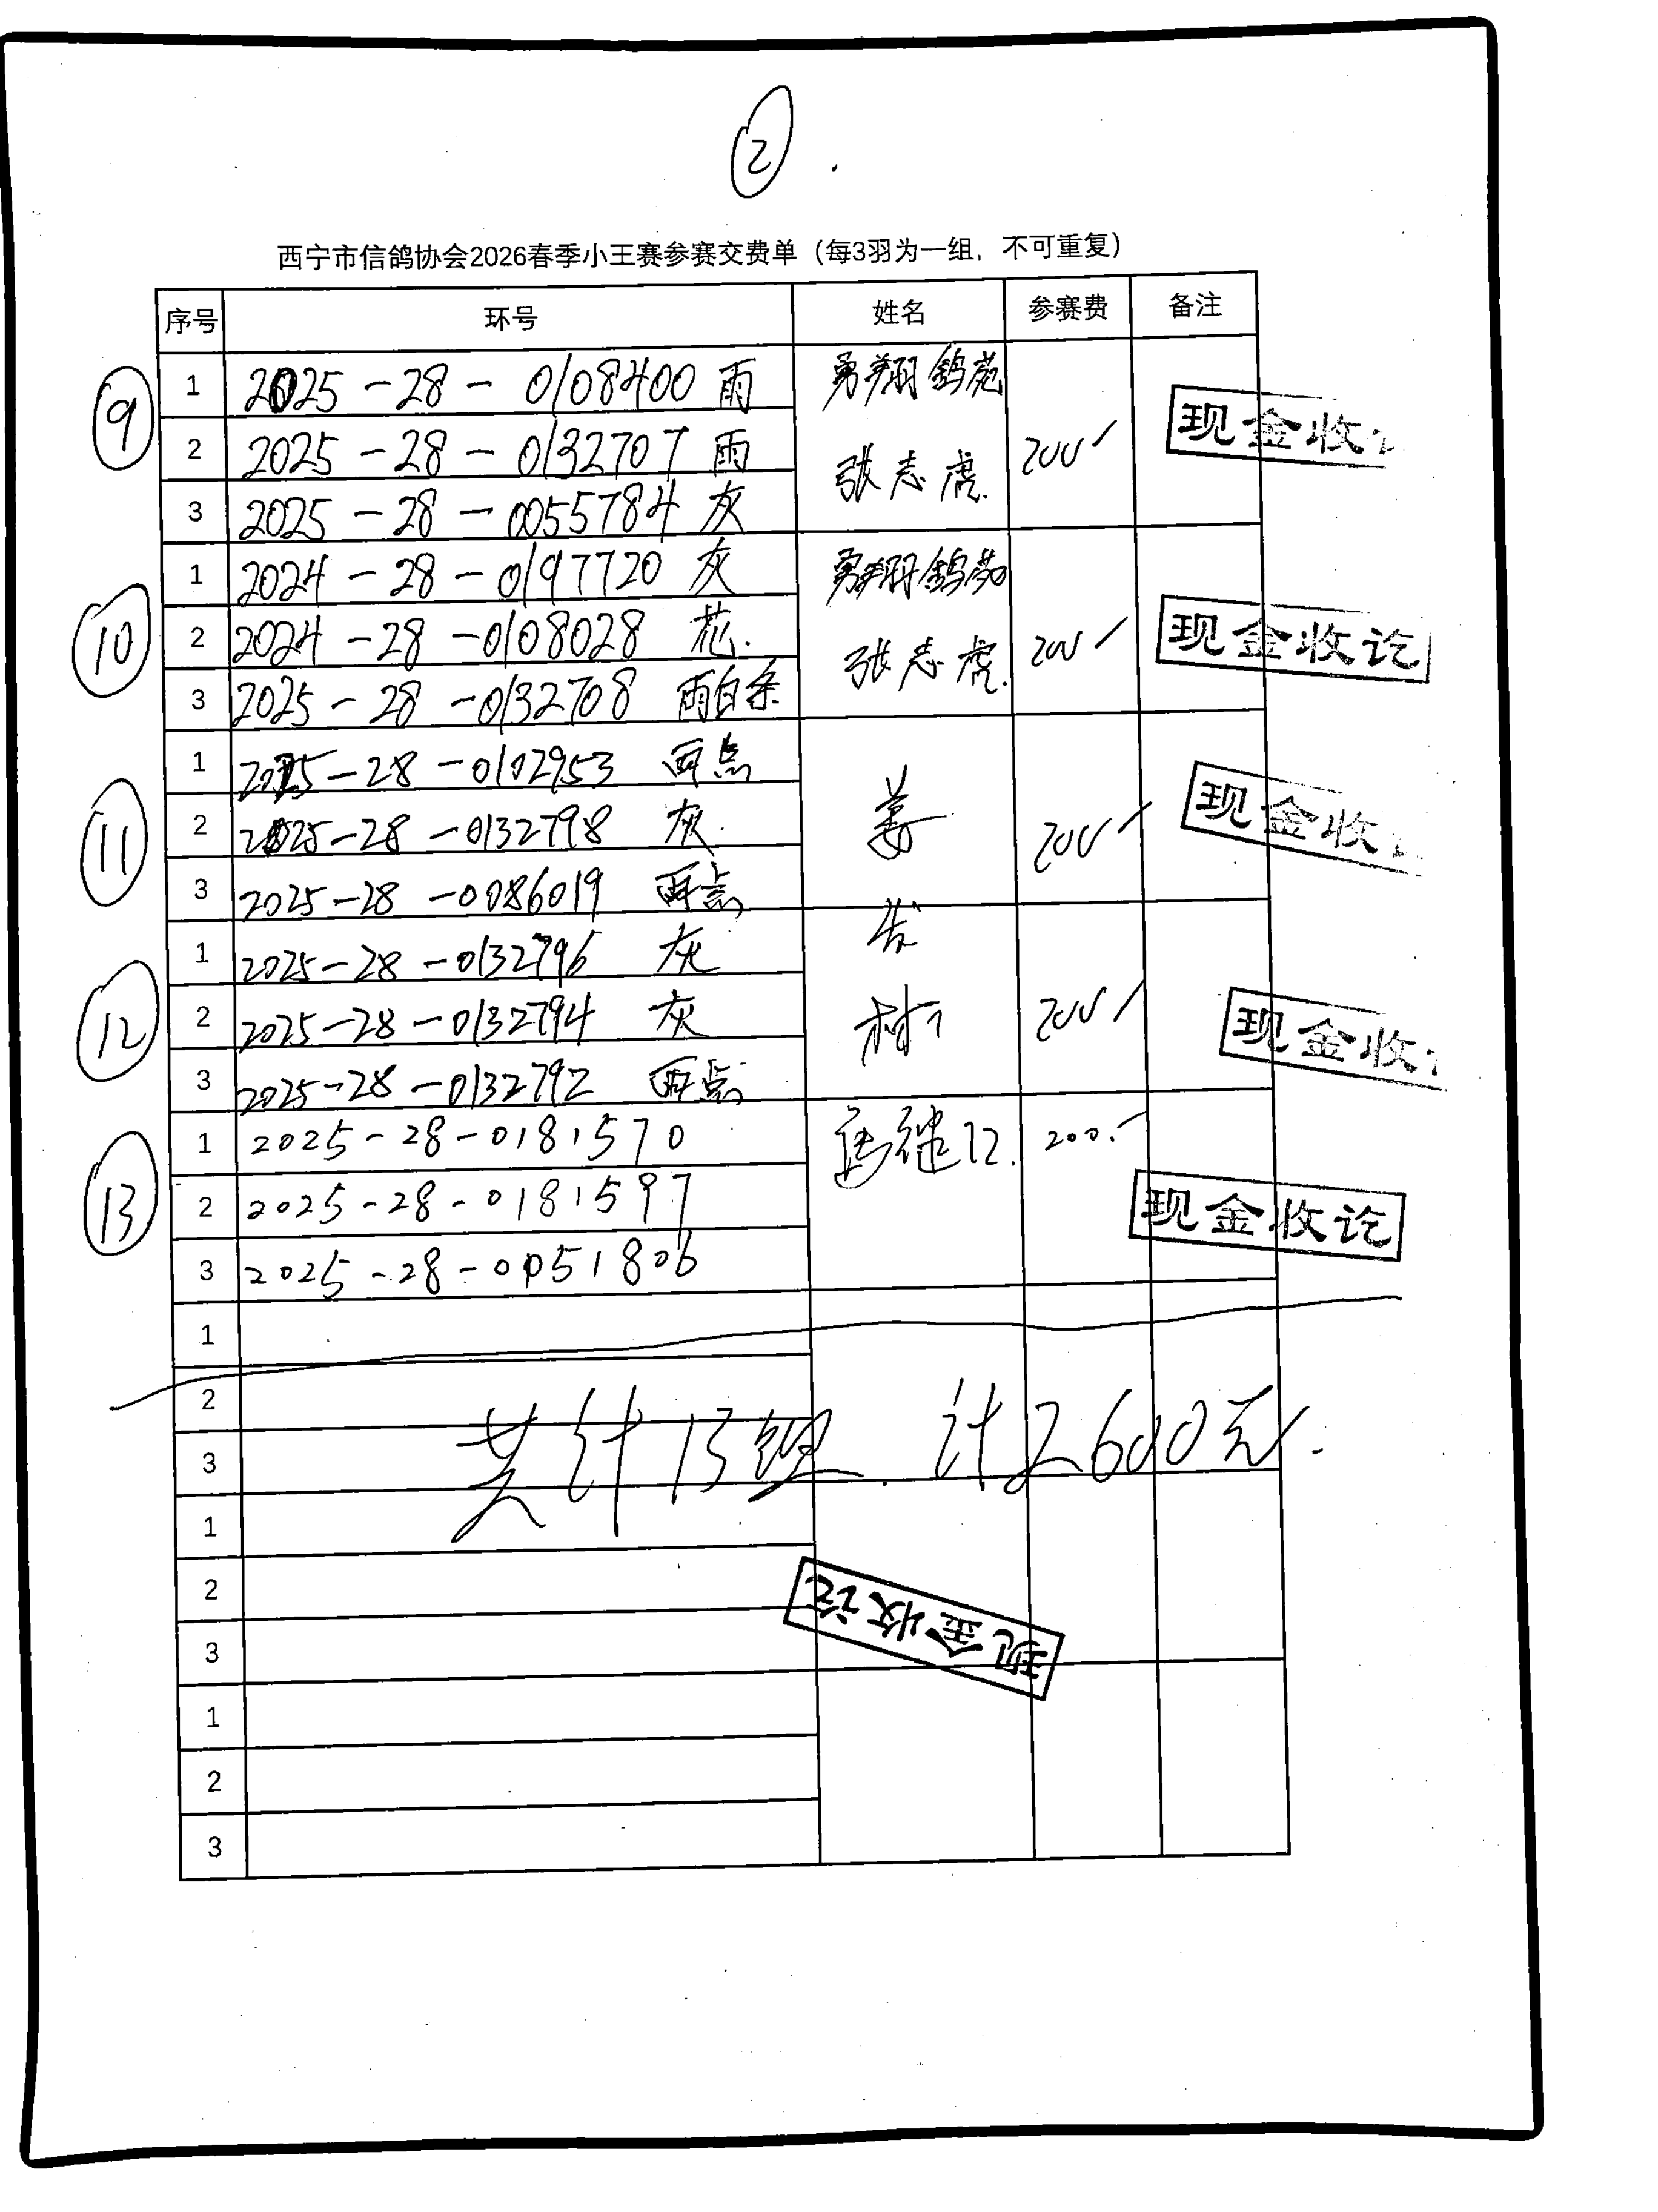 ②
西宁市信鸽协会2026春季小王赛参赛交费单（每3羽为一组，不可重复）
序号 环号 姓名 参赛费 备注
⑨
1 2025-28-0108400 雨 勇翔鸽苑
2 2025-28-0132707 雨 张志虎. 200 现金收
3 2025-28-0055784 灰
⑩
1 2024-28-0197720 灰 勇翔鸽苑
2 2024-28-0108028 花. 张志虎. 200 现金收讫
3 2025-28-0132708 雨白条
⑪
1 2025-28-0102953 雨点
2 2025-28-0132798 灰 姜 200 现金收
3 2025-28-0086019 雨点
⑫
1 2025-28-0132796 灰
2 2025-28-0132794 灰 树 200 现金收
3 2025-28-0132792 雨点
⑬
1 2025-28-0181570 200.
2 2025-28-0181597 现金收讫
3 2025-28-0051806
1
2
3
共计13组. 计2600元.
1
2
3
现金收讫
1
2
3